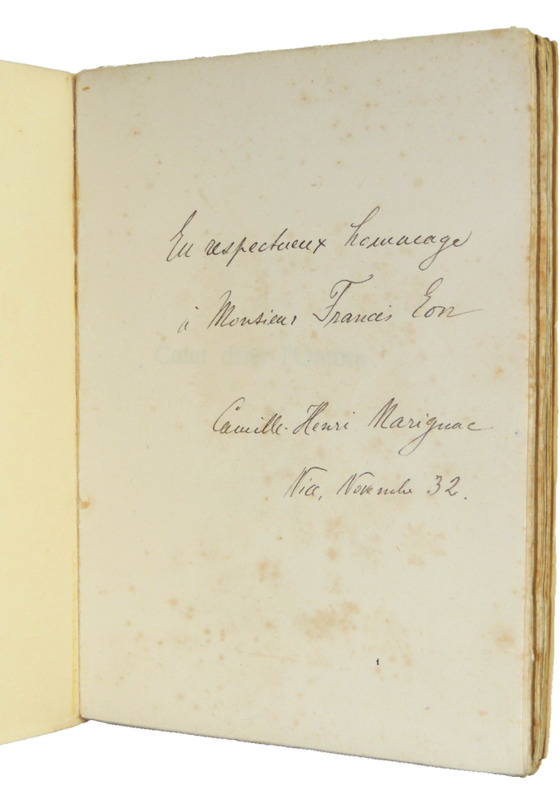 En respectueux hommage
à Monsieur Francis Eon
Camille-Henri Marignac
Nice, Novembre 32.
1